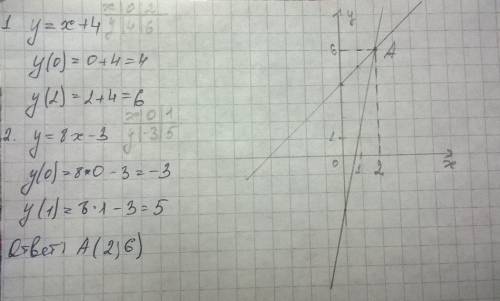 x 0 2
1 y = x + 4 y 4 6
y(0) = 0 + 4 = 4
y(2) = 2 + 4 = 6
x 0 1
2. y = 8x - 3 y -3 5
y(0) = 8*0 - 3 = -3
y(1) = 8·1 - 3 = 5
Ответ: A(2;6)
y
6
A
1
0
1
2
x